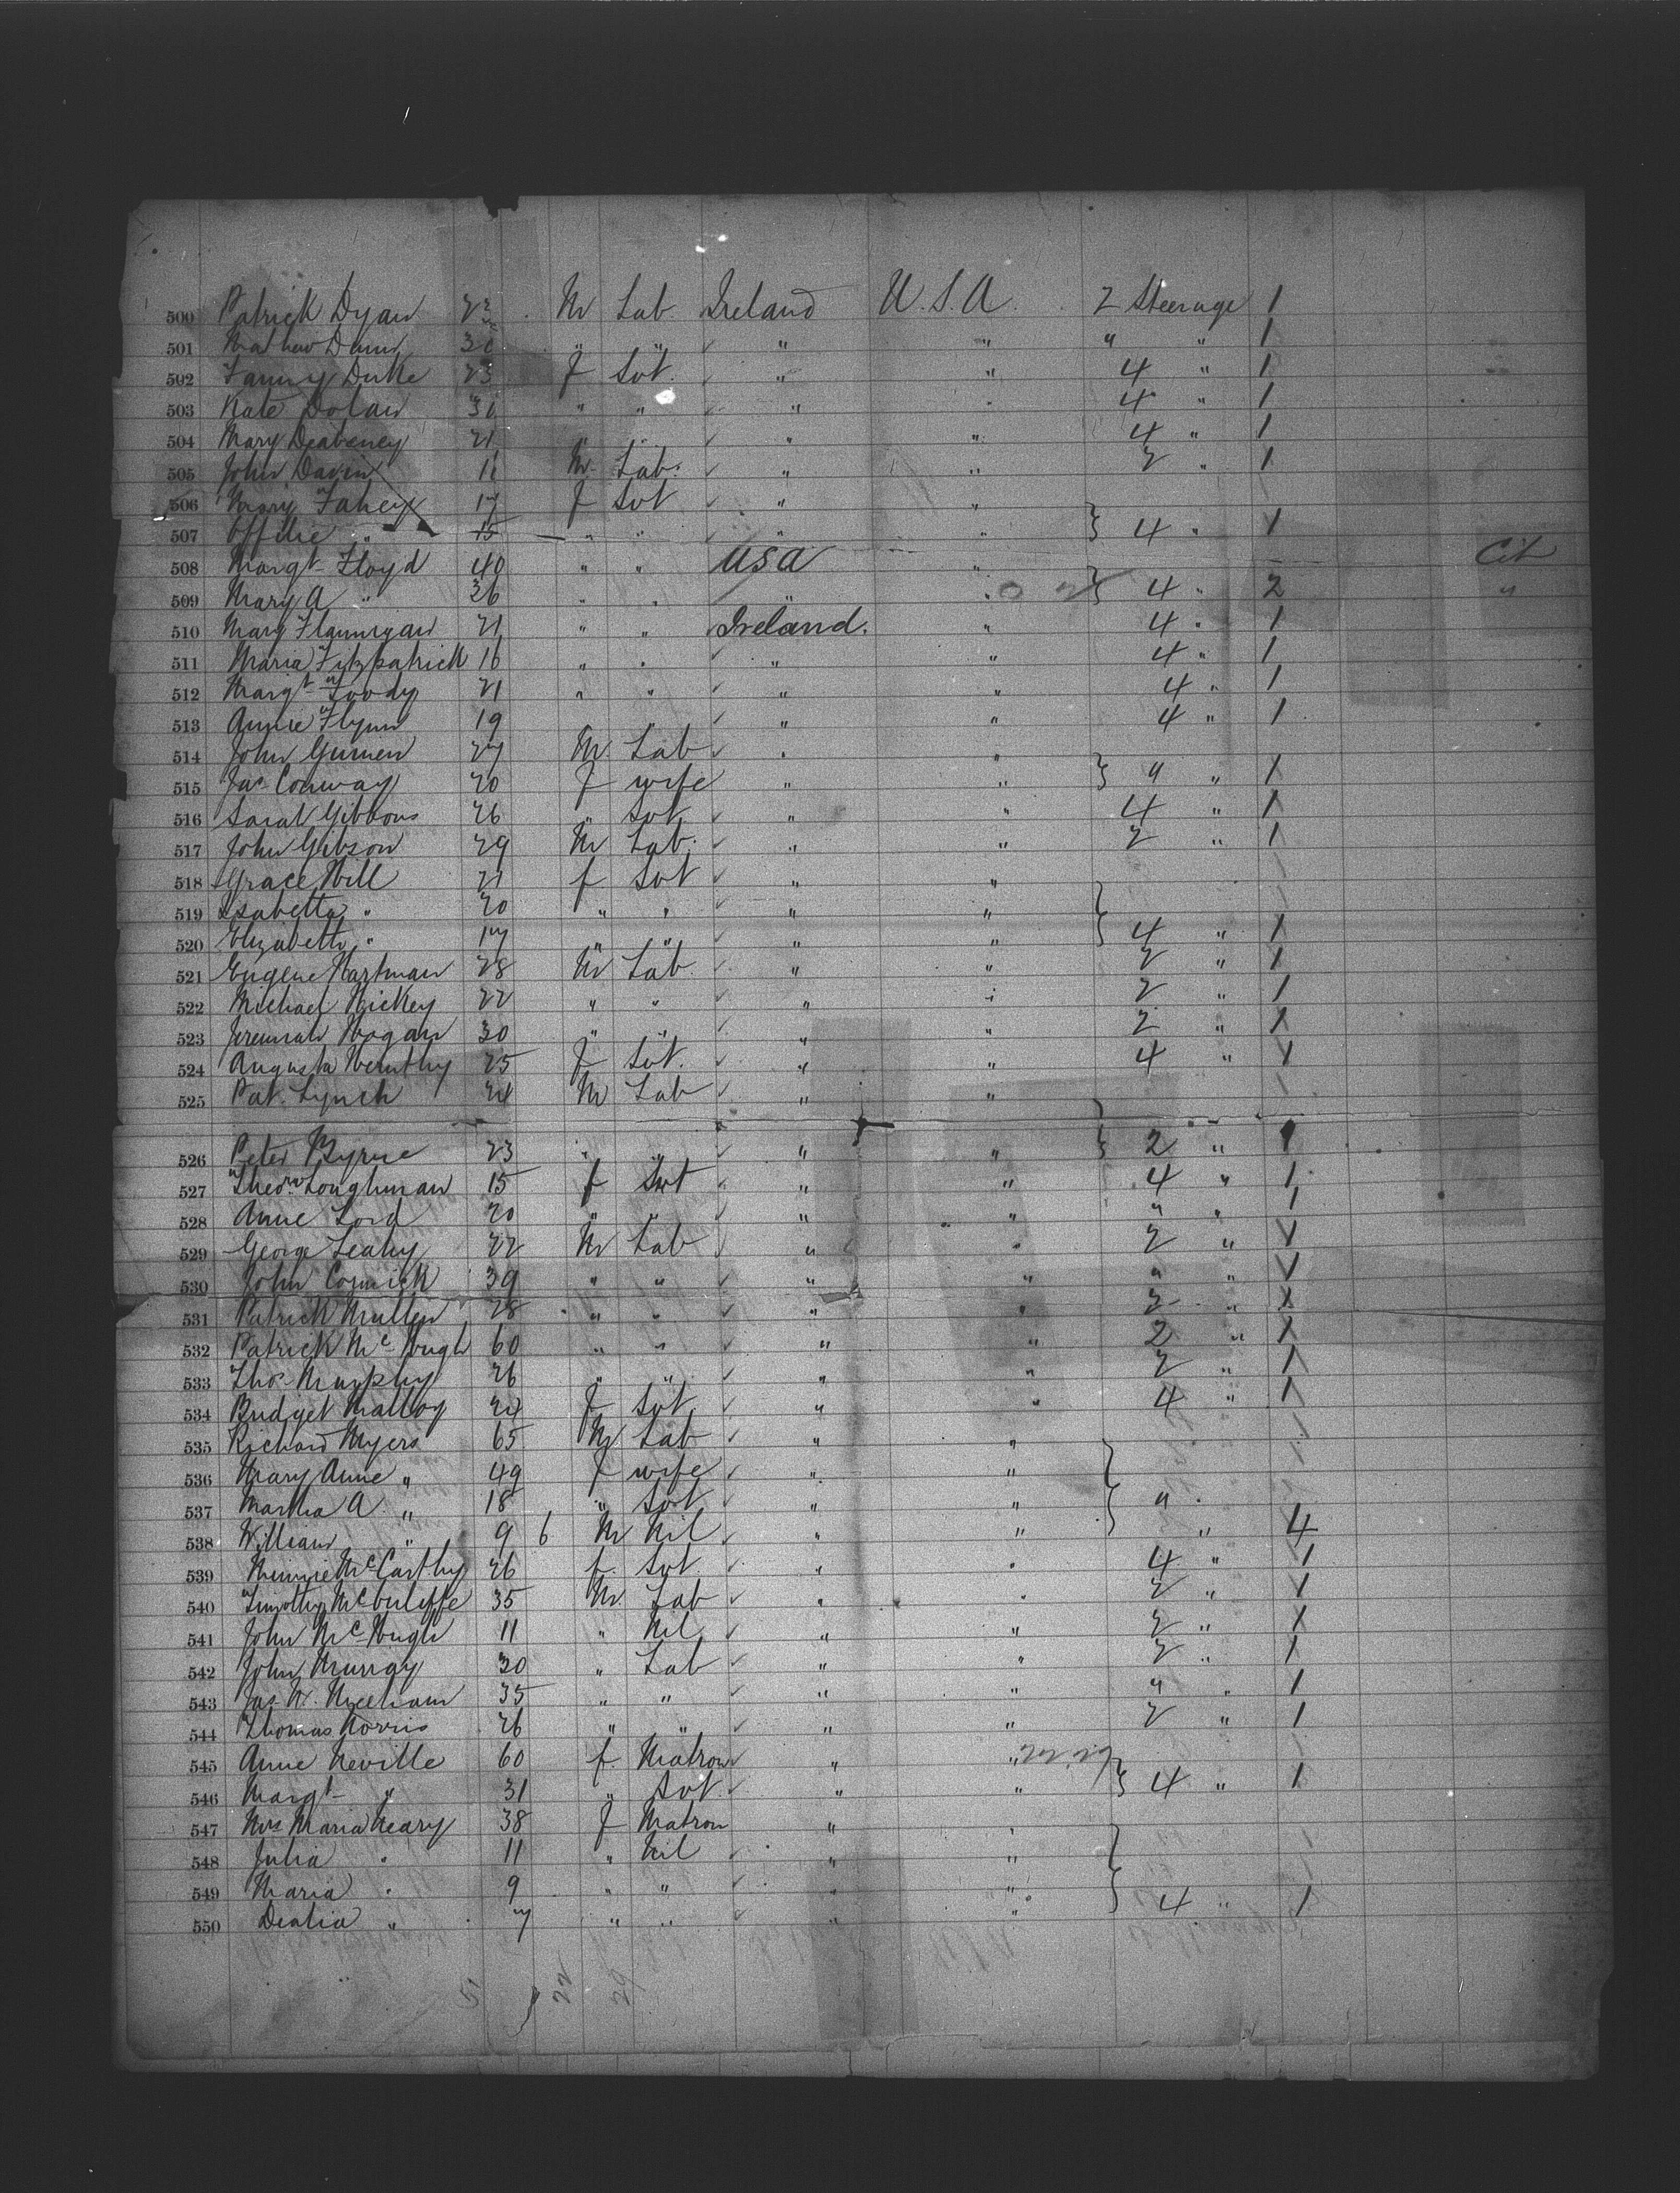 500 Patrick Dyan 23 M Lab Ireland U.S.A. 2 Steerage 1
501 Mathew Dunn 30 " " " " " " 1
502 Fanny Duke 23 f Svt " " 4 " 1
503 Kate Dolan 30 " " " " 4 " 1
504 Mary 21 " " " " 4 " 1
505 John Davin M Lab. " " 2 " 1
506 Mary Fahey 17 f Svt " "
507 " 15 " " " " } 4 " 1
508 Margt Floyd 40 " " USA " Cit
509 Mary A " 36 " " " " } 4 " 2 "
510 Mary Flannigan 21 " " Ireland. " 4 " 1
511 Maria Fitzpatrick 16 " " " " 4 " 1
512 Margt Foody 21 " " " " 4 " 1
513 Annie Flynn 19 " " 4 " 1
514 John 27 M Lab " "
515 Jas Conway 20 f wife " " } " " 1
516 Sarah Gibbons 26 " Svt " " 4 " 1
517 John Gibson 29 M Lab. " " 2 " 1
518 Grace Hill 21 f Svt " "
519 Isabella " 20 " " " "
520 Elizabeth " 17 " " " " } 4 " 1
521 Eugene Hartman 28 M Lab " " 2 " 1
522 Michael Hickey 22 " " " " 2 " 1
523 Jeremiah Hogan 30 " " " " 2 " 1
524 Augusta 25 f Svt. " " 4 " 1
525 Pat. Lynch 24 M Lab " "
526 Peter Byrne 23 " " " " } 2 " 1
527 Loughman 15 f Svt " " 4 " 1
528 Anne Lord 20 " " " " " " 1
529 George Leahy 22 M Lab " " 2 " 1
530 John Cormick 39 " " " " " " 1
531 Patrick Mullen 28 " " " " 2 " 1
532 Patrick McHugh 60 " " " " 2 " 1
533 Thos Murphy 26 " " " " 2 " 1
534 Bridget Malloy 24 f Svt " " 4 " 1
535 Richard Myers 65 M Lab " "
536 Mary Anne " 49 f wife " "
537 Martha A. " 18 " Svt " " } "
538 William " 9 6 M Nil " " " 4
539 Minnie McCarthy 26 f. Svt " " 4 " 1
540 Timothy McAuliffe 35 M Lab " " 2 " 1
541 John McHugh 11 " Nil " " 2 " 1
542 John Murray 30 " Lab " " 2 " 1
543 Jas 35 " " " " " " 1
544 Thomas Norris 26 " " " " 2 " 1
545 Anne Neville 60 f. Matron " "
546 Margt " 31 " Svt " " } 4 " 1
547 Mrs Maria Neary 38 f Matron " "
548 Julia " 11 " Nil " "
549 Maria " 9 " " " "
550 Delia " 7 " " " " } 4 " 1
51 22 29